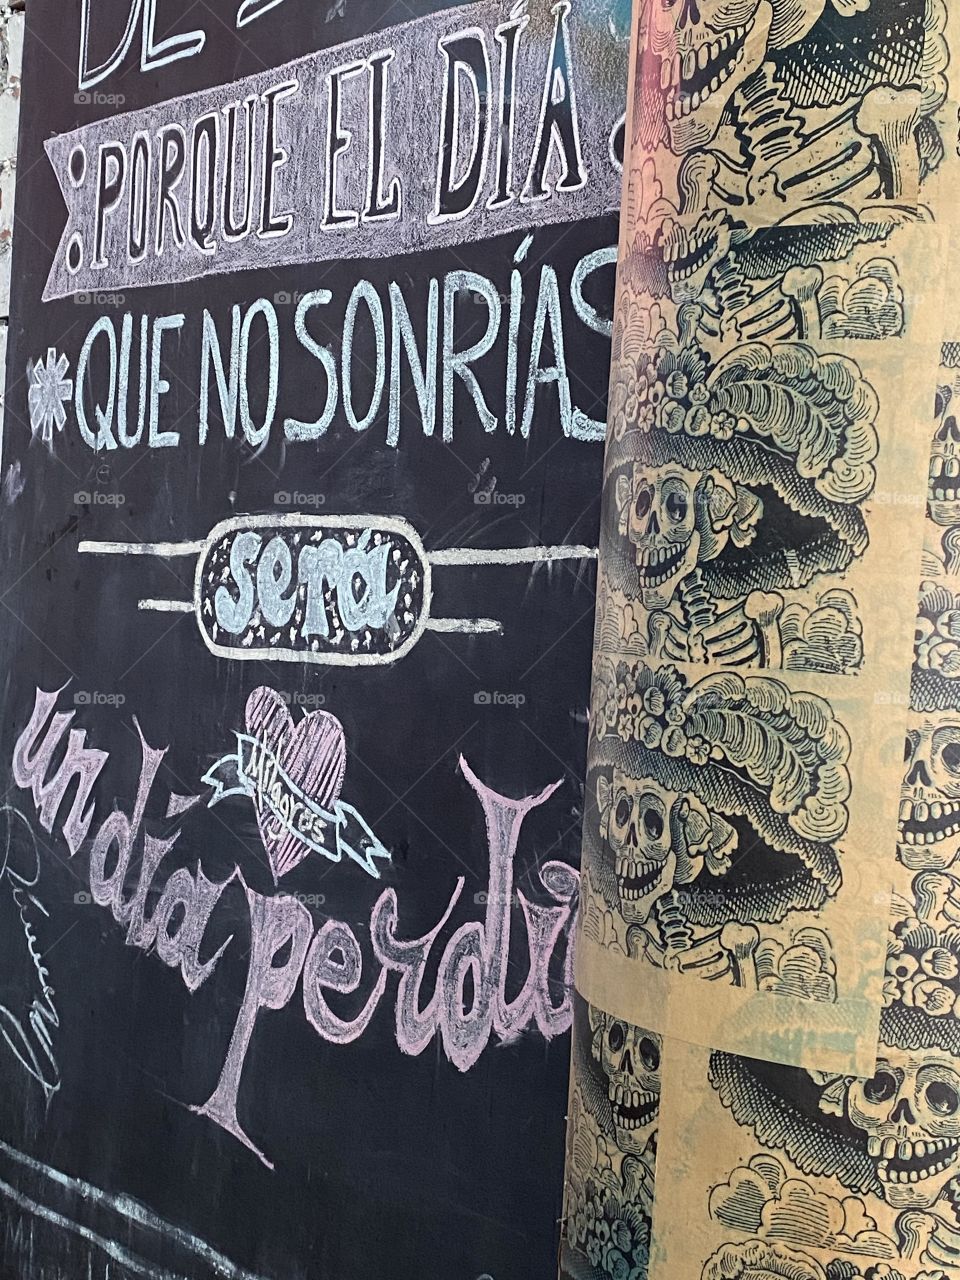 DE
:PORQUE EL DÍA
*QUE NO SONRÍAS
será
Milagros
un día perdi
Posada